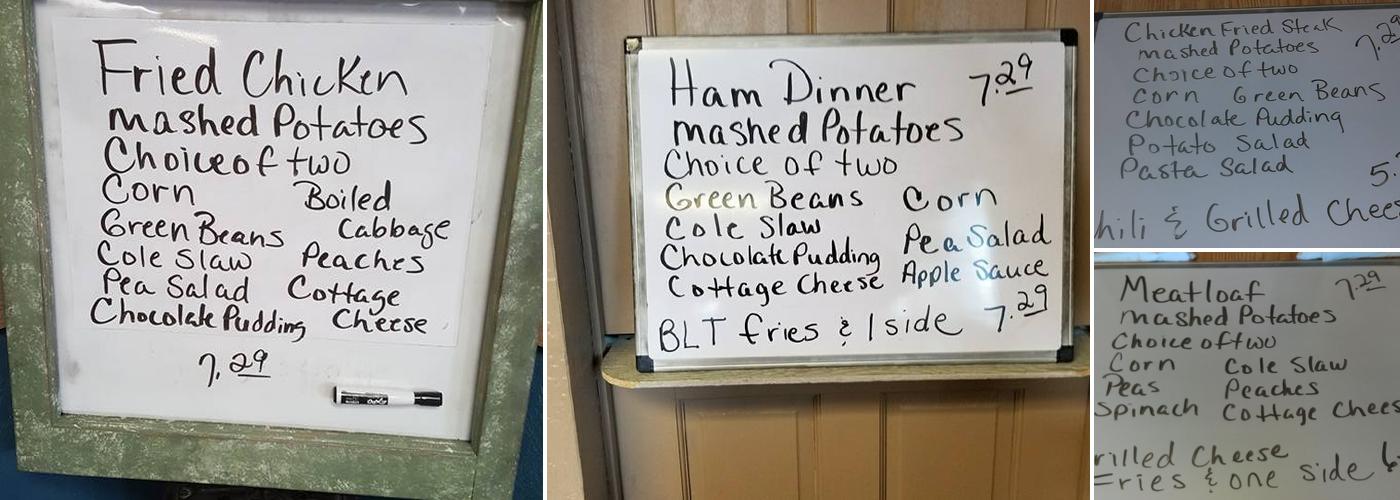 Fried Chicken
mashed Potatoes
Choice of two
Corn Boiled
Green Beans Cabbage
Cole Slaw Peaches
Pea Salad Cottage
Chocolate Pudding Cheese
7.29
Ham Dinner 7.29
mashed Potatoes
Choice of two
Green Beans Corn
Cole Slaw Pea Salad
Chocolate Pudding Apple Sauce
Cottage Cheese
BLT fries & 1 side 7.29
Chicken Fried Steak
mashed Potatoes 7.29
Choice of two
Corn Green Beans
Chocolate Pudding
Potato Salad
Pasta Salad
5.
hili & Grilled Chees
Meatloaf 7.29
mashed Potatoes
Choice of two
Corn Cole Slaw
Peas Peaches
Spinach Cottage Chees
rilled Cheese
Fries & one side 6.